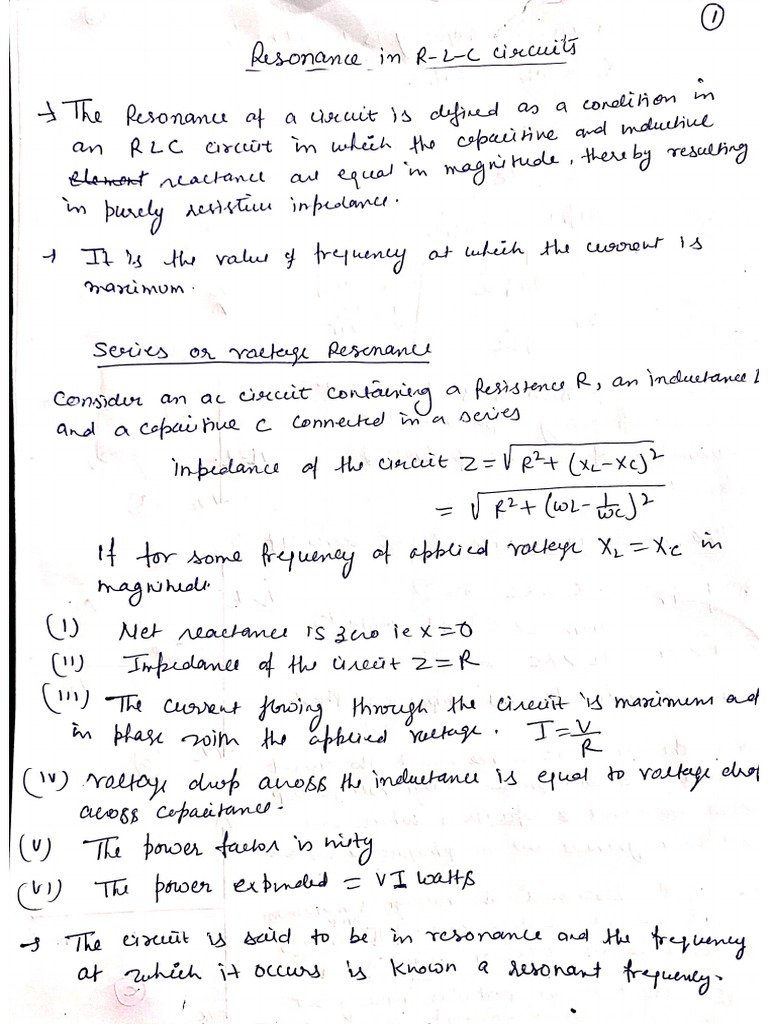 1
Resonance in R-L-C circuits
→ The Resonance of a circuit is defined as a condition in
an RLC circuit in which the capacitive and inductive
element reactance are equal in magnitude, thereby resulting
in purely resistive impedance.
→ It is the value of frequency at which the current is
maximum.
Series or voltage Resonance
Consider an ac circuit containing a Resistence R, an inductance L
and a capacitive C connected in a series
impedance of the circuit Z = √R² + (XL - XC)²
= √R² + (ωL - 1/ωC)²
If for some frequency of applied voltage XL = Xc in
magnitude.
(i) Net reactance is zero ie X = 0
(ii) Impedance of the circuit Z = R
(iii) The current flowing through the circuit is maximum and
in phase with the applied voltage. I = V/R
(iv) voltage drop across the inductance is equal to voltage drop
across capacitance.
(v) The power factor is unity
(vi) The power expended = VI watts
→ The circuit is said to be in resonance and the frequency
at which it occurs is known a resonant frequency.